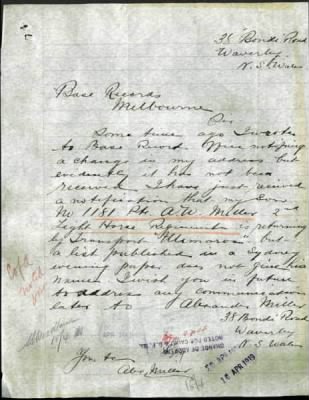 38 Bondi Road
Waverly
N. S. Wales
Base Records
Melbourne
Sir
Some time ago I wrote
to Base Record Office notifying
a change in my address but
evidently it has not been
received. I have just received
a notification that my son
No 1181 Pte. A. W. Miller 2nd
Light Horse Regiment is returning
by Transport "Ulimaroa" but
a list published in a Sydney
evening paper does not give his
name. I wish you in future
to address any communication
to Alexander Miller
38 Bondi Road
Waverly
N. S. Wales
Yours
Alex. Miller
CHANGE OF ADDRESS
NOTED FOR
APR 1919
15 APR 1919